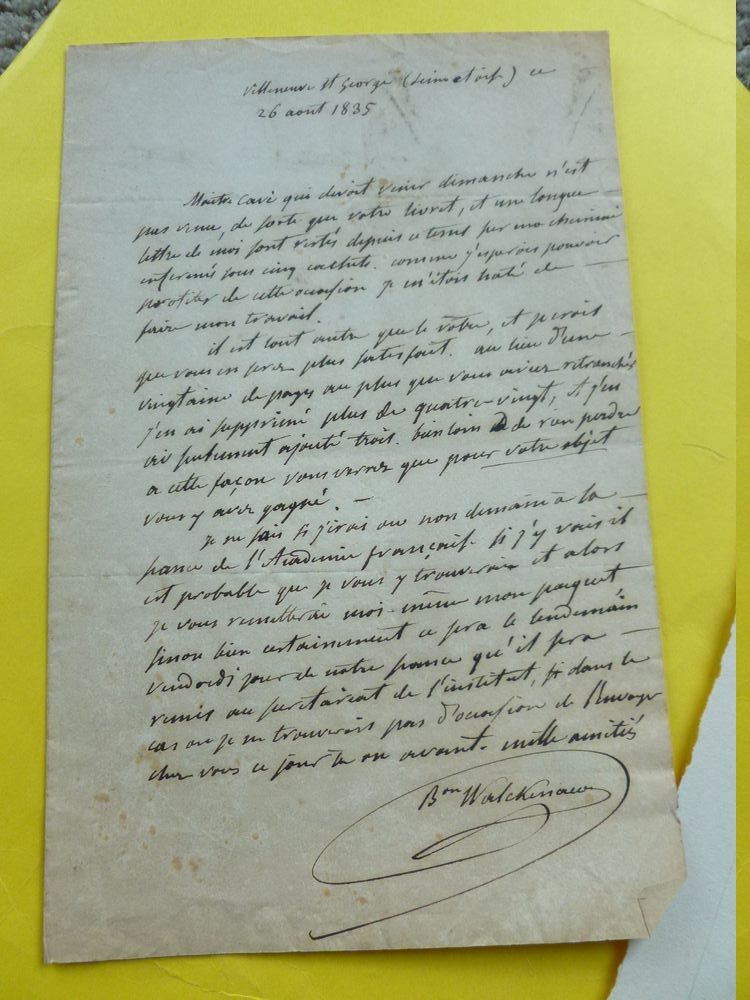 Villeneuve St George (Seine et oise) ce
26 aout 1835
Maitre Cavé qui devoit venir dimanche n'est
pas venu, de sorte que votre livret, et une longue
lettre de moi sont restés depuis ce tems sur ma cheminée
enfermés sous cinq cachets. comme j'esperois pouvoir
profiter de cette occasion je m'étois haté de
faire mon travail.
il est tout autre que le votre, et je crois
que vous en serez plus satisfait. au lieu d'une
vingtaine de pages au plus que vous aviez retranchés
j'en ai supprimé plus de quatre-vingt, et j'en
ai seulement ajouté trois. bien loin de rien perdre
a cette façon vous verrez que pour votre objet
vous y avez gagné. —
je ne sais si j'irai ou non demain à la
seance de l'Academie française si j'y vais il
est probable que je vous y trouverai et alors
je vous remettrai moi-même mon paquet
sinon bien certainement ce sera le lendemain
vendredi jour de notre seance qu'il sera
remis au secretariat de l'institut, si dans le
cas ou je ne trouverais pas d'occasion de l'envoyer
chez vous ce jour la ou avant. mille amitiés
Bon Walckenaer